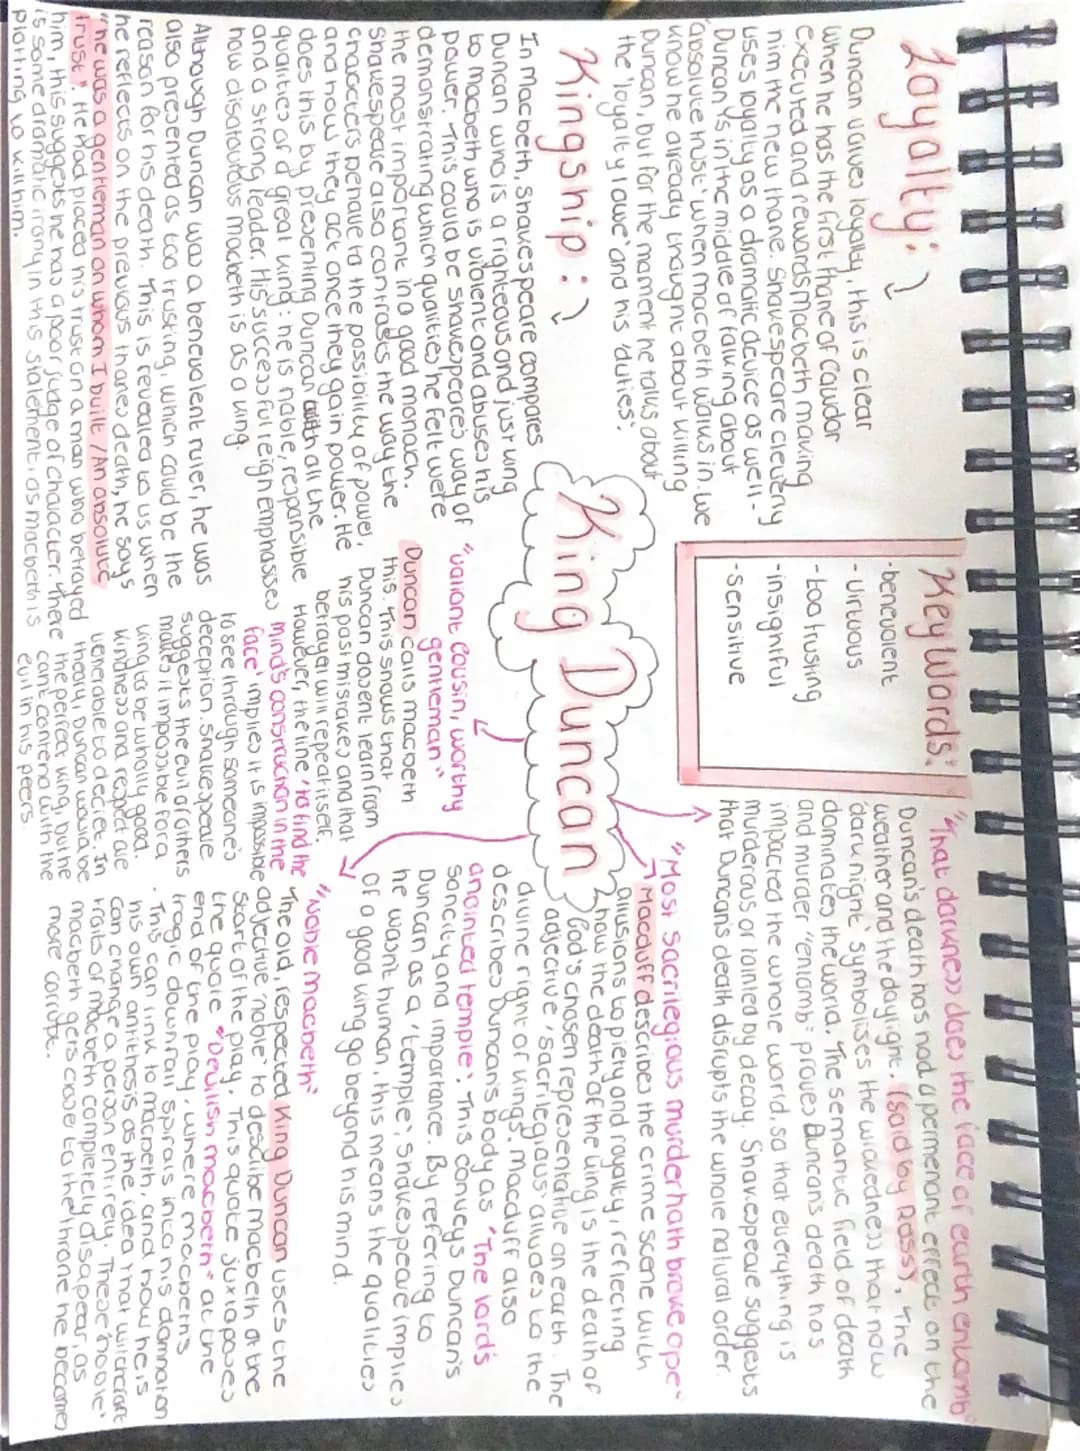 Loyalty:
Duncan values loyalty, this is clear
when he has the first thane of caudor
executed and rewards macbeth making
him the new thane. Shakespeare cleverly
uses loyalty as a dramatic device as well -
Duncan is in the middle of talking about
'absolute trust' when macbeth walks in. we
know he already thought about killing
Duncan, but for the moment he talks about
the 'loyalty I owe' and his 'duties'.
Kingship:
In macbeth, Shakespeare compares
Duncan who is a righteous and just king
to macbeth who is violent and abuses his
power. This could be Shakespeares way of
demonstrating which qualities he felt were
the most important in a good monach.
Shakespeare also contrasts the way the
characters behave to the possibility of power,
and how they act once they gain power. He
does this by presenting Duncan with all the
qualities of a great king: he is noble, responsible
and a strong leader. His successful reign emphasises
how disatourous macbeth is as a king.
Although Duncan was a benevolent ruler, he was
also presented as too trusting, which could be the
reason for his death. This is revealed to us when
he reflects on the previous thanes death, he says
"he was a gentleman on whom I built / An absolute
trust" He had placed his trust on a man who betrayed
him, this suggests he has a poor judge of character. There
is some dramatic irony in this statement, as macbeth is
plotting to kill him.
Key words:
- benevolent
- virtuous
- too trusting
- insightful
- sensitive
King Duncan
"valiant cousin, worthy
gentleman"
Duncan calls macbeth
this. This shows that
Duncan dosent learn from
his past mistakes and that
betrayal will repeat itself.
However, the line 'to find the
mind's construction in the
face' implies it is impossible
to see through someone's
deception. Shakespeare
suggests the evil of others
makes it impossible for a
king to be wholly good.
Kindness and respect are
venerable to deciet. In
theory, Duncan would be
the perfect king, but he
cant contend with the
evil in his peers.
"That darkness does the face of earth entomb"
Duncan's death has had a permenant effect on the
weather and the daylight. (said by Ross), The
'dark night' symbolises the wickedness that now
dominates the world. The semantic field of death
and murder "entomb" proves Duncan's death has
impacted the whole world, so that everything is
murderous or tainted by decay. Shakespeare suggests
that Duncans death disrupts the whole natural order.
"Most sacrilegious murder hath broke ope"
Macduff describes the crime scene with
allusions to piety and royalty, reflecting
how the death of the king is the death of
God's chosen representative on earth. The
adjective 'sacrilegious' alludes to the
divine right of kings. Macduff also
describes Duncan's body as 'The lord's
anointed temple'. This conveys Duncan's
sancity and importance. By refering to
Duncan as a 'temple', Shakespeare implies
he wasn't human, this means the qualities
of a good king go beyond his mind.
"Noble macbeth"
The old, respected King Duncan uses the
adjective 'noble' to desribe macbeth at the
start of the play. This quote juxtaposes
the quote "Devilish macbeth" at the
end of the play, where macbeths
tragic downfall spirals into his damnation
. This can link to macbeth, and how he is
his own antithesis as the idea that witchcraft
can change a person entirely. These 'noble'
traits of macbeth completely disapear, as
macbeth gets closer to the throne he becomes
more corrupt.